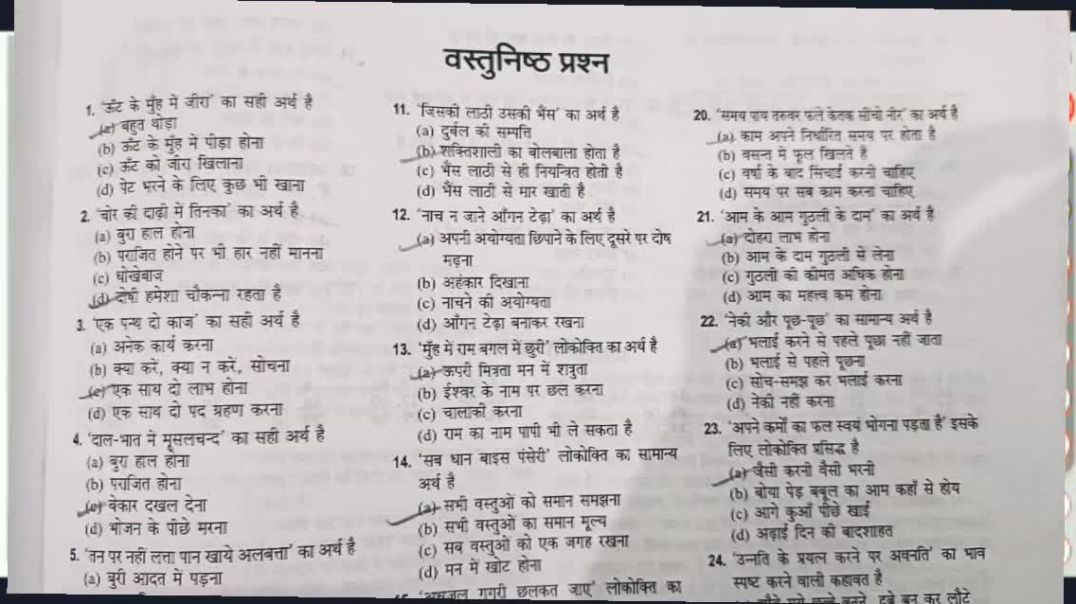 वस्तुनिष्ठ प्रश्न
1. 'ऊँट के मुँह में जीरा' का सही अर्थ है
(a) बहुत थोड़ा
(b) ऊँट के मुँह में पीड़ा होना
(c) ऊँट को जीरा खिलाना
(d) पेट भरने के लिए कुछ भी खाना
2. 'चोर की दाढ़ी में तिनका' का अर्थ है
(a) बुरा हाल होना
(b) पराजित होने पर भी हार नहीं मानना
(c) धोखेबाज
(d) दोषी हमेशा चौकन्ना रहता है
3. 'एक पन्थ दो काज' का सही अर्थ है
(a) अनेक कार्य करना
(b) क्या करें, क्या न करें, सोचना
(c) एक साथ दो लाभ होना
(d) एक साथ दो पद ग्रहण करना
4. 'दाल-भात में मूसलचन्द' का सही अर्थ है
(a) बुरा हाल होना
(b) पराजित होना
(c) बेकार दखल देना
(d) भोजन के पीछे मरना
5. 'तन पर नहीं लत्ता पान खाये अलबत्ता' का अर्थ है
(a) बुरी आदत में पड़ना
11. 'जिसकी लाठी उसकी भैंस' का अर्थ है
(a) दुर्बल की सम्पत्ति
(b) शक्तिशाली का बोलबाला होता है
(c) भैंस लाठी से ही नियन्त्रित होती है
(d) भैंस लाठी से मार खाती है
12. 'नाच न जाने आँगन टेढ़ा' का अर्थ है
(a) अपनी अयोग्यता छिपाने के लिए दूसरे पर दोष
मढ़ना
(b) अहंकार दिखाना
(c) नाचने की अयोग्यता
(d) आँगन टेढ़ा बनाकर रखना
13. 'मुँह में राम बगल में छुरी' लोकोक्ति का अर्थ है
(a) ऊपरी मित्रता मन में शत्रुता
(b) ईश्वर के नाम पर छल करना
(c) चालाकी करना
(d) राम का नाम पापी भी ले सकता है
14. 'सब धान बाइस पंसेरी' लोकोक्ति का सामान्य
अर्थ है
(a) सभी वस्तुओं को समान समझना
(b) सभी वस्तुओं का समान मूल्य
(c) सब वस्तुओं को एक जगह रखना
(d) मन में खोट होना
15. 'अधजल गगरी छलकत जाए' लोकोक्ति का
20. 'समय पाय तरुवर फले केतक सींचो नीर' का अर्थ है
(a) काम अपने निर्धारित समय पर होता है
(b) वसन्त में फूल खिलते हैं
(c) वर्षा के बाद सिंचाई करनी चाहिए
(d) समय पर सब काम करना चाहिए
21. 'आम के आम गुठली के दाम' का अर्थ है
(a) दोहरा लाभ होना
(b) आम के दाम गुठली से लेना
(c) गुठली की कीमत अधिक होना
(d) आम का महत्त्व कम होना
22. 'नेकी और पूछ-पूछ' का सामान्य अर्थ है
(a) भलाई करने से पहले पूछा नहीं जाता
(b) भलाई से पहले पूछना
(c) सोच-समझ कर भलाई करना
(d) नेकी नहीं करना
23. 'अपने कर्मों का फल स्वयं भोगना पड़ता है' इसके
लिए लोकोक्ति प्रसिद्ध है
(a) जैसी करनी वैसी भरनी
(b) बोया पेड़ बबूल का आम कहाँ से होय
(c) आगे कुआँ पीछे खाई
(d) अढ़ाई दिन की बादशाहत
24. 'उन्नति के प्रयत्न करने पर अवनति' का भाव
स्पष्ट करने वाली कहावत है
बनने, दूबे बन कर लौटे